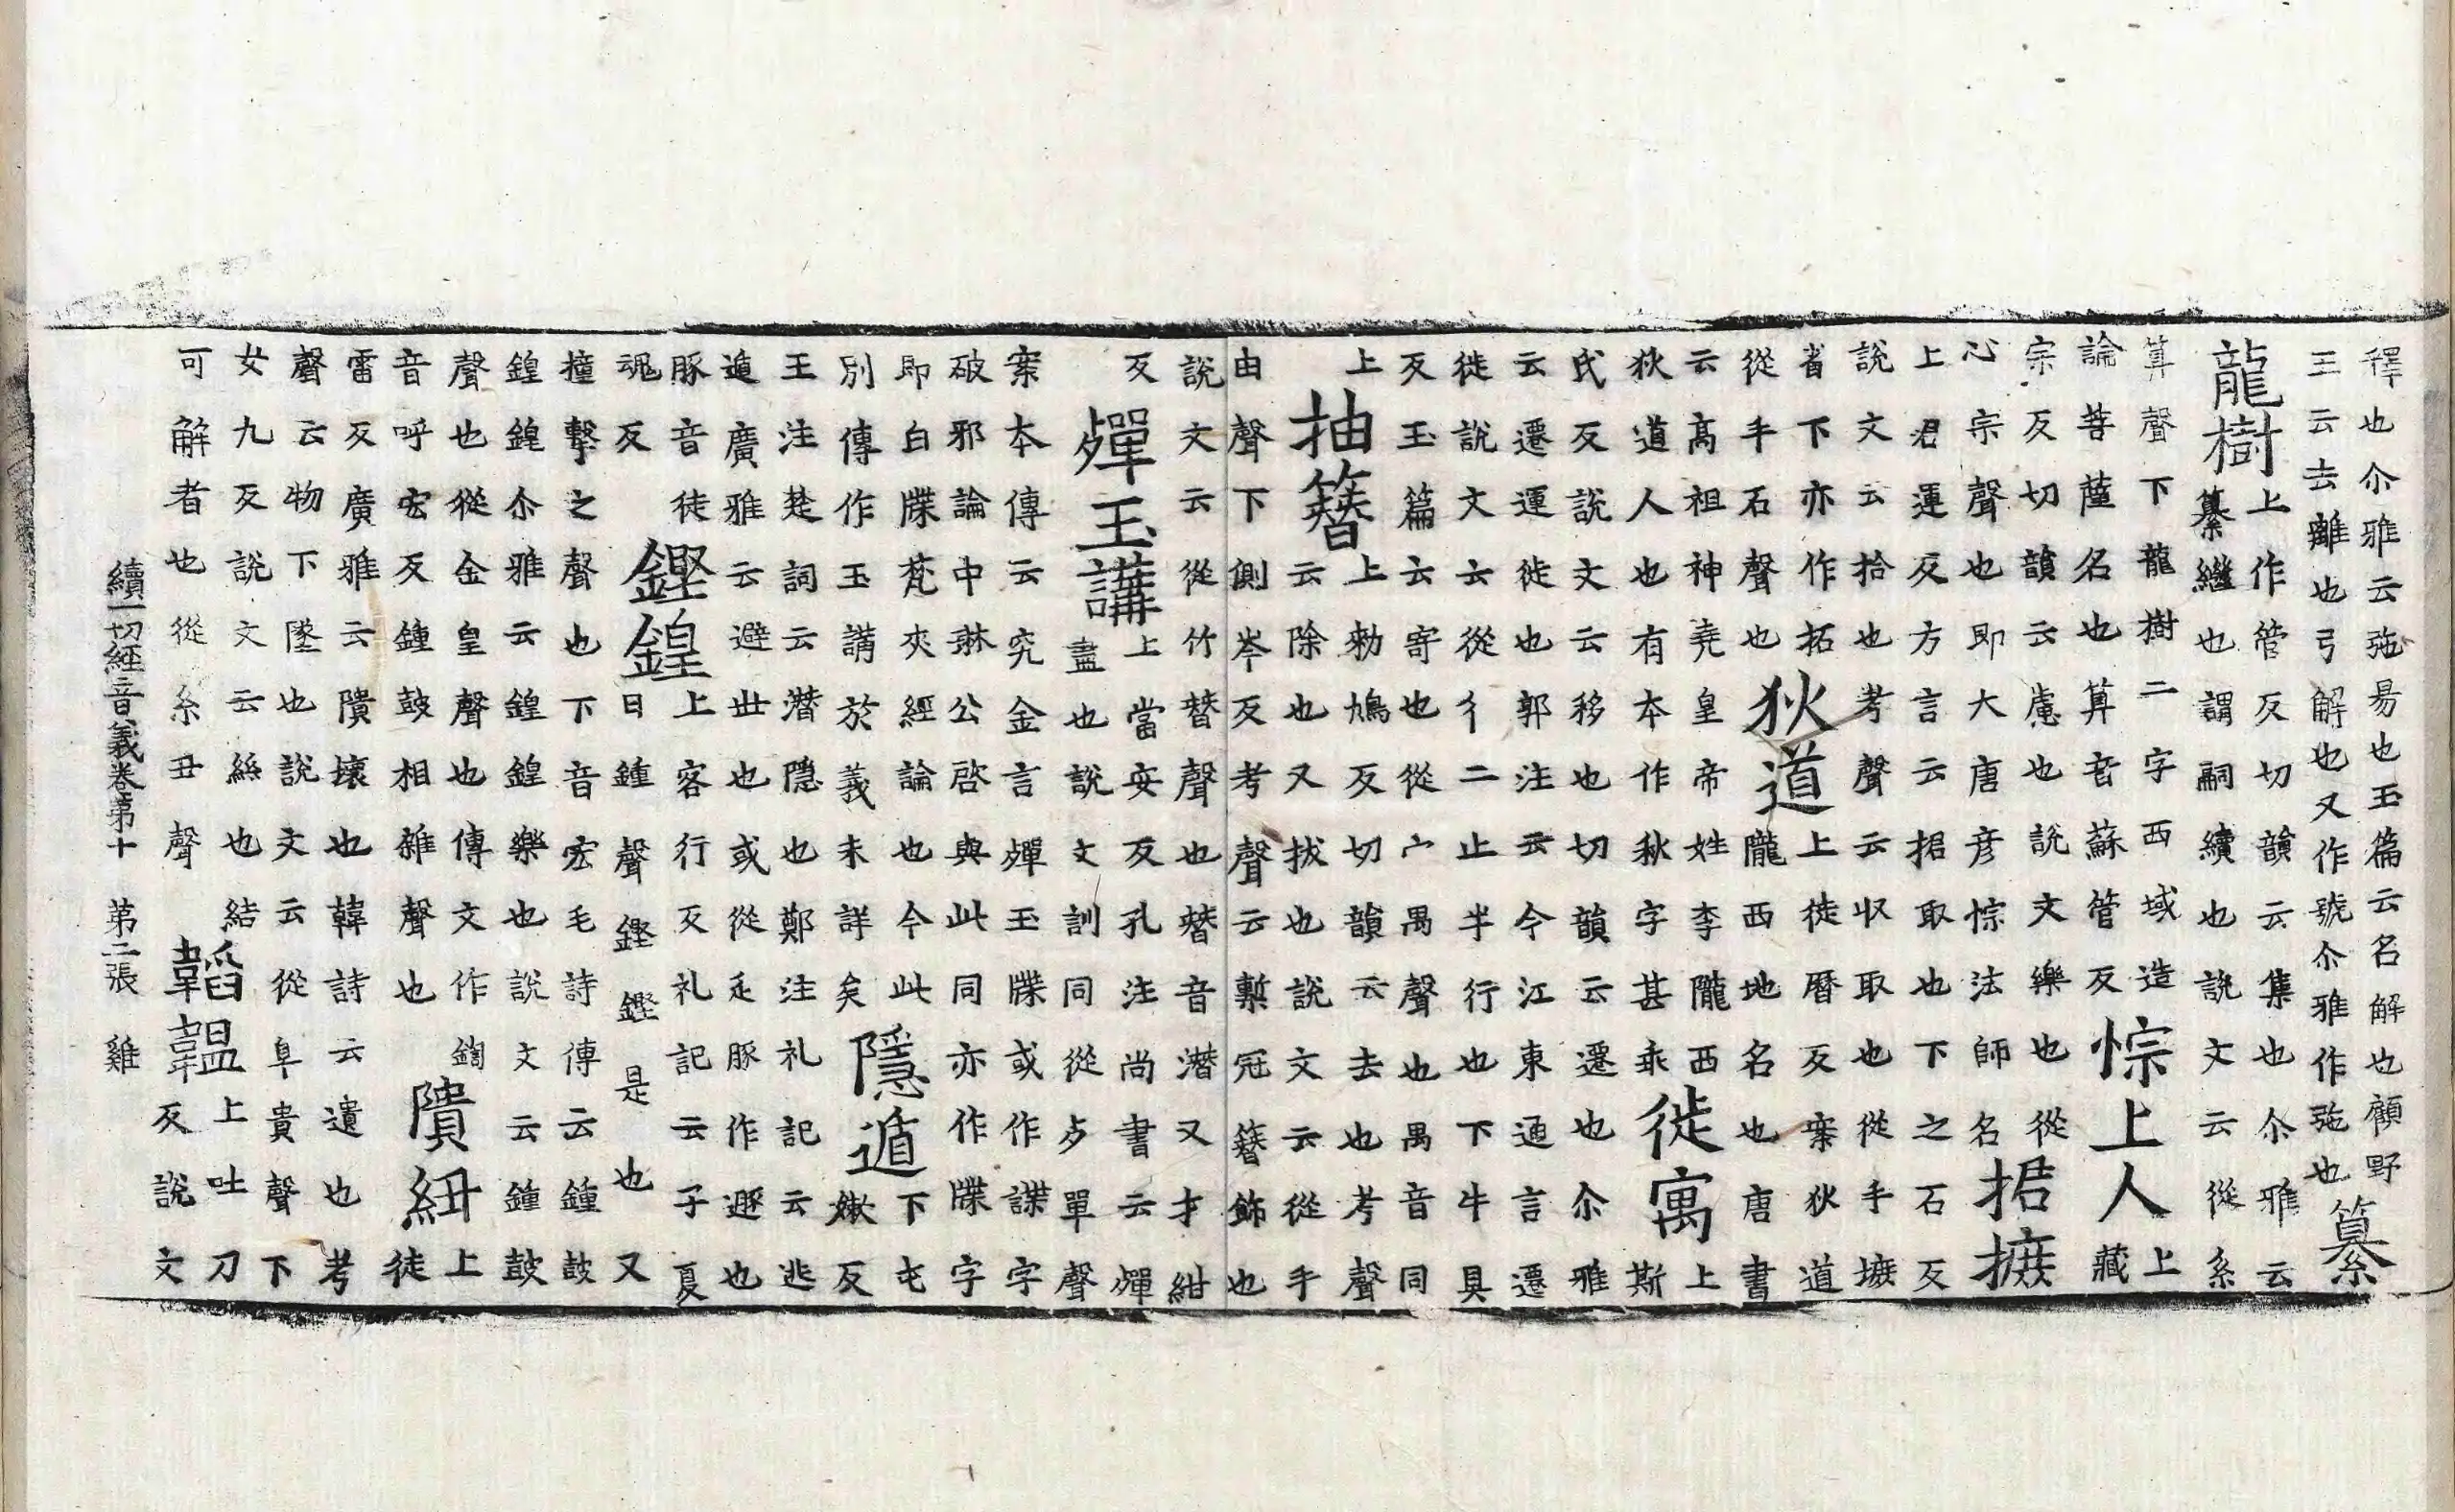 釋也尒雅云弛易也玉篇云名解也顧野
王云去離也弓解也又作號尒雅作弛也
纂
龍樹
上作管反切韻云集也尒雅云
纂繼也謂嗣續也說文云從糸
算聲下龍樹二字西域造
論菩薩名也算音蘇管反
悰上人
上藏
宗反切韻云慮也說文樂也從
心宗聲也即大唐彥悰法師名
据摭
上君運反方言云据取也下之石反
說文云拾也考聲云収取也從手摭
省下亦作拓
從手石聲也
狄道
上徒曆反案狄道
隴西地名也唐書
云高祖神堯皇帝姓李隴西
狄道人也有本作秋字甚乖
徙寓
上斯
氏反說文云移也切韻云遷也尒雅
云遷運徙也郭注云今江東通言遷
徙說文云從彳二止半行也下牛具
反玉篇云寄也從宀禺聲也禺音同
上
抽簪
上勑鳩反切韻云去也考聲
云除也又拔也說文云從手
由聲下側岑反考聲云蔪冠簪飾也
說文云從竹朁聲也朁音潛又才紺
反
殫玉講
上當安反孔注尚書云殫
盡也說文訓同從歺單聲
案本傳云究金言殫玉牒或作諜字
破邪論中琳公啓與此同亦作牒字
即白牒梵夾經論也今此
別傳作玉講於義未詳矣
隱遁
下屯
嫩反
王注楚詞云潛隱也鄭注礼記云逃
遁廣雅云避世也或從辵豚作遯也
豚音徒
魂反
鏗鍠
上客行反礼記云子夏
曰鍾聲鏗鏗是也又
撞擊之聲也下音宏毛詩傳云鍾鼓
鍠鍠尒雅云鍠鍠樂也說文云鍾鼓
聲也從金皇聲也傳文作鍧
音呼宏反鍾鼓相雜聲也
隤紐
上徒
雷反廣雅云隤壞也韓詩云遺也考
聲云物下墜也說文云從阜貴聲下
女九反說文云絲也結
可解者也從糸丑聲
韜韞
上吐刀
反說文
續一切經音義卷第十 第二張 雞